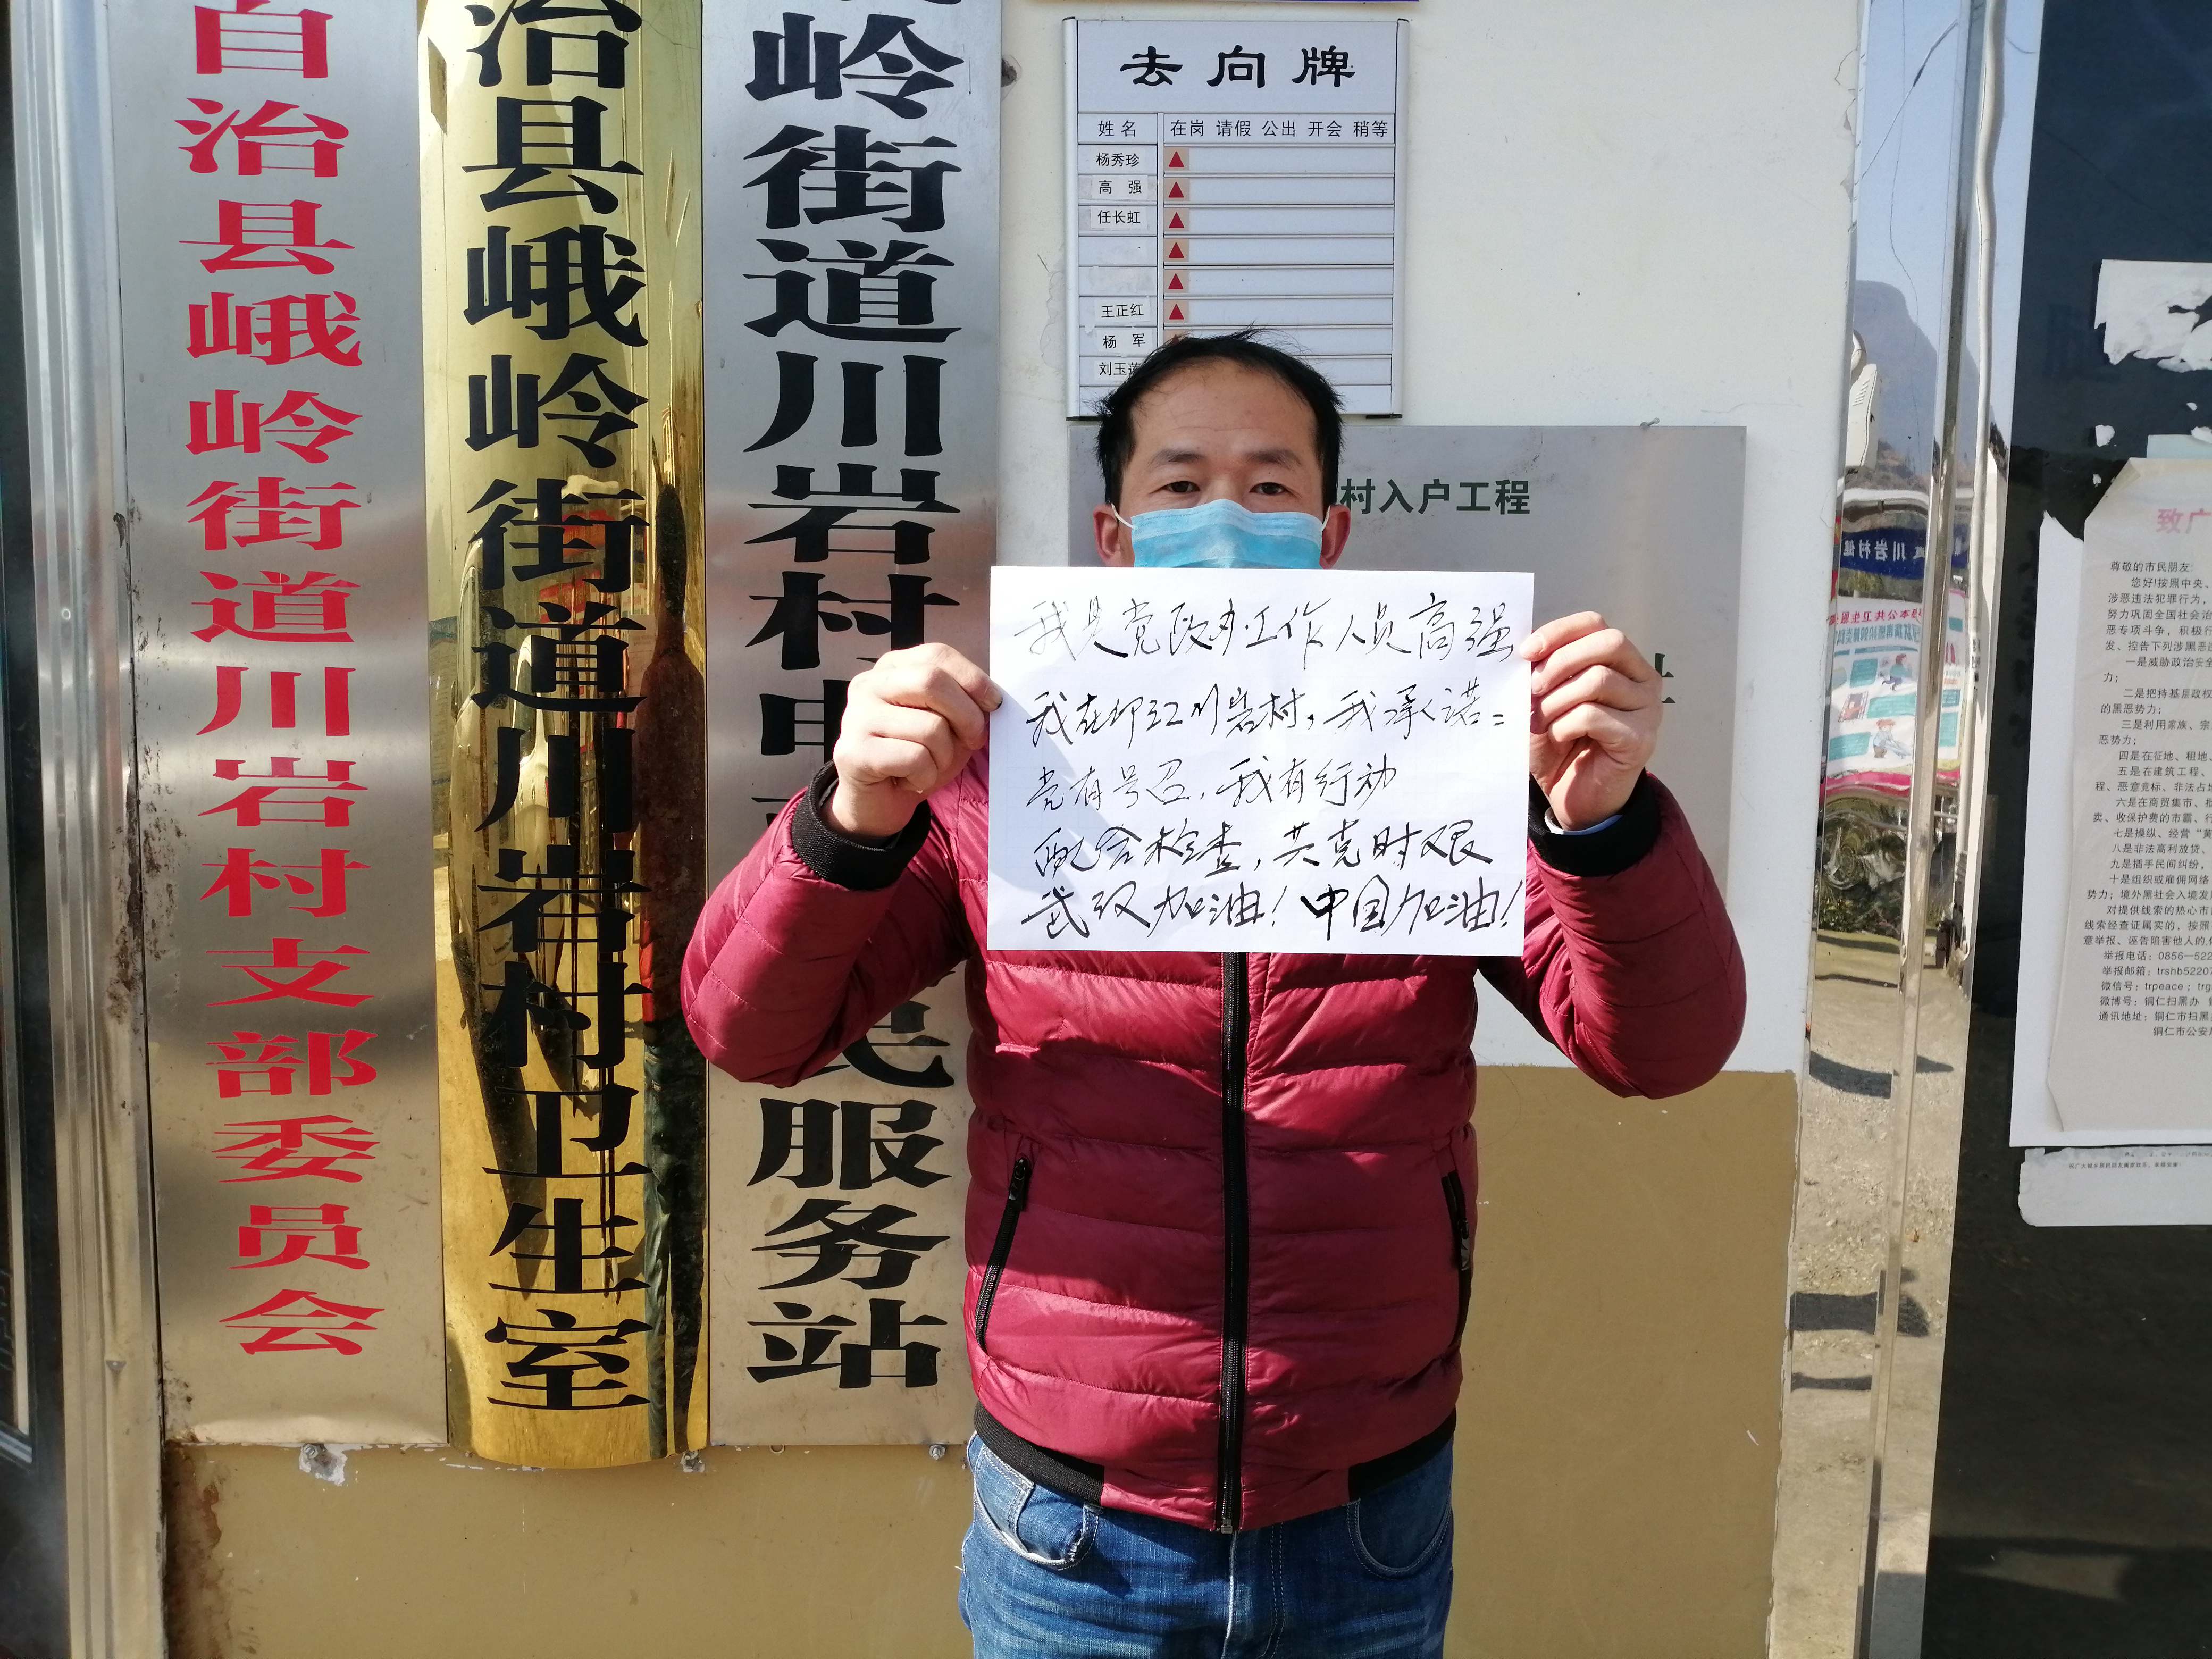 自治县峨岭街道川岩村支部委员会
治县峨岭街道川岩村卫生室
岭街道川岩村电
民服务站
去向牌
姓名 在岗 请假 公出 开会 稍等
杨秀珍
高强
任长虹
王正红
杨军
刘玉
村入户工程
我是党政办工作人员高强
我在印江川岩村，我承诺：
党有号召，我有行动
配合检查，共克时艰
武汉加油！中国加油！
川岩村
致广
尊敬的市民朋友：
您好！按照中央、
涉恶违法犯罪行为，
努力巩固全国社会治
恶专项斗争，积极行
发、控告下列涉黑恶
一是威胁政治安全
力；
二是把持基层政权
的黑恶势力；
三是利用家族、宗
恶势力；
四是在征地、租地、
五是在建筑工程、
程、恶意竞标、非法占地
六是在商贸集市、批
卖、收保护费的市霸、行
七是操纵、经营“黄
八是非法高利放贷、
九是插手民间纠纷，
十是组织或雇佣网络
势力；境外黑社会入境发
对提供线索的热心市
线索经查证属实的，按照
意举报、诬告陷害他人的，
举报电话：0856—522
举报邮箱：trshb5220
微信号：trpeace；trg
微博号：铜仁扫黑办
通讯地址：铜仁市扫黑
铜仁市公安